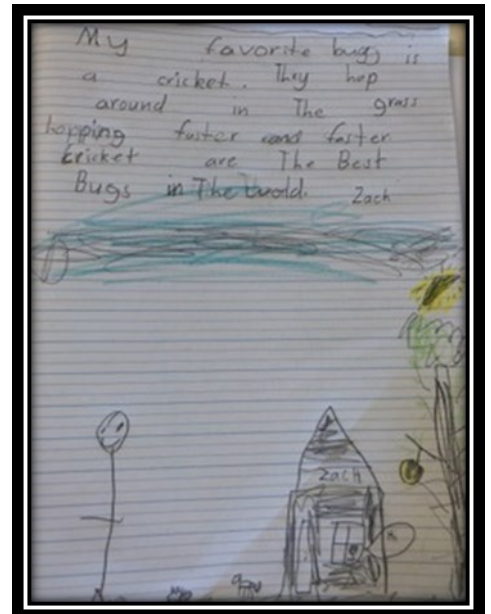 My favorite bugs is
a cricket. They hop
around in The grass
hopping faster and faster
Cricket are The Best
Bugs in The World. Zach
Zach